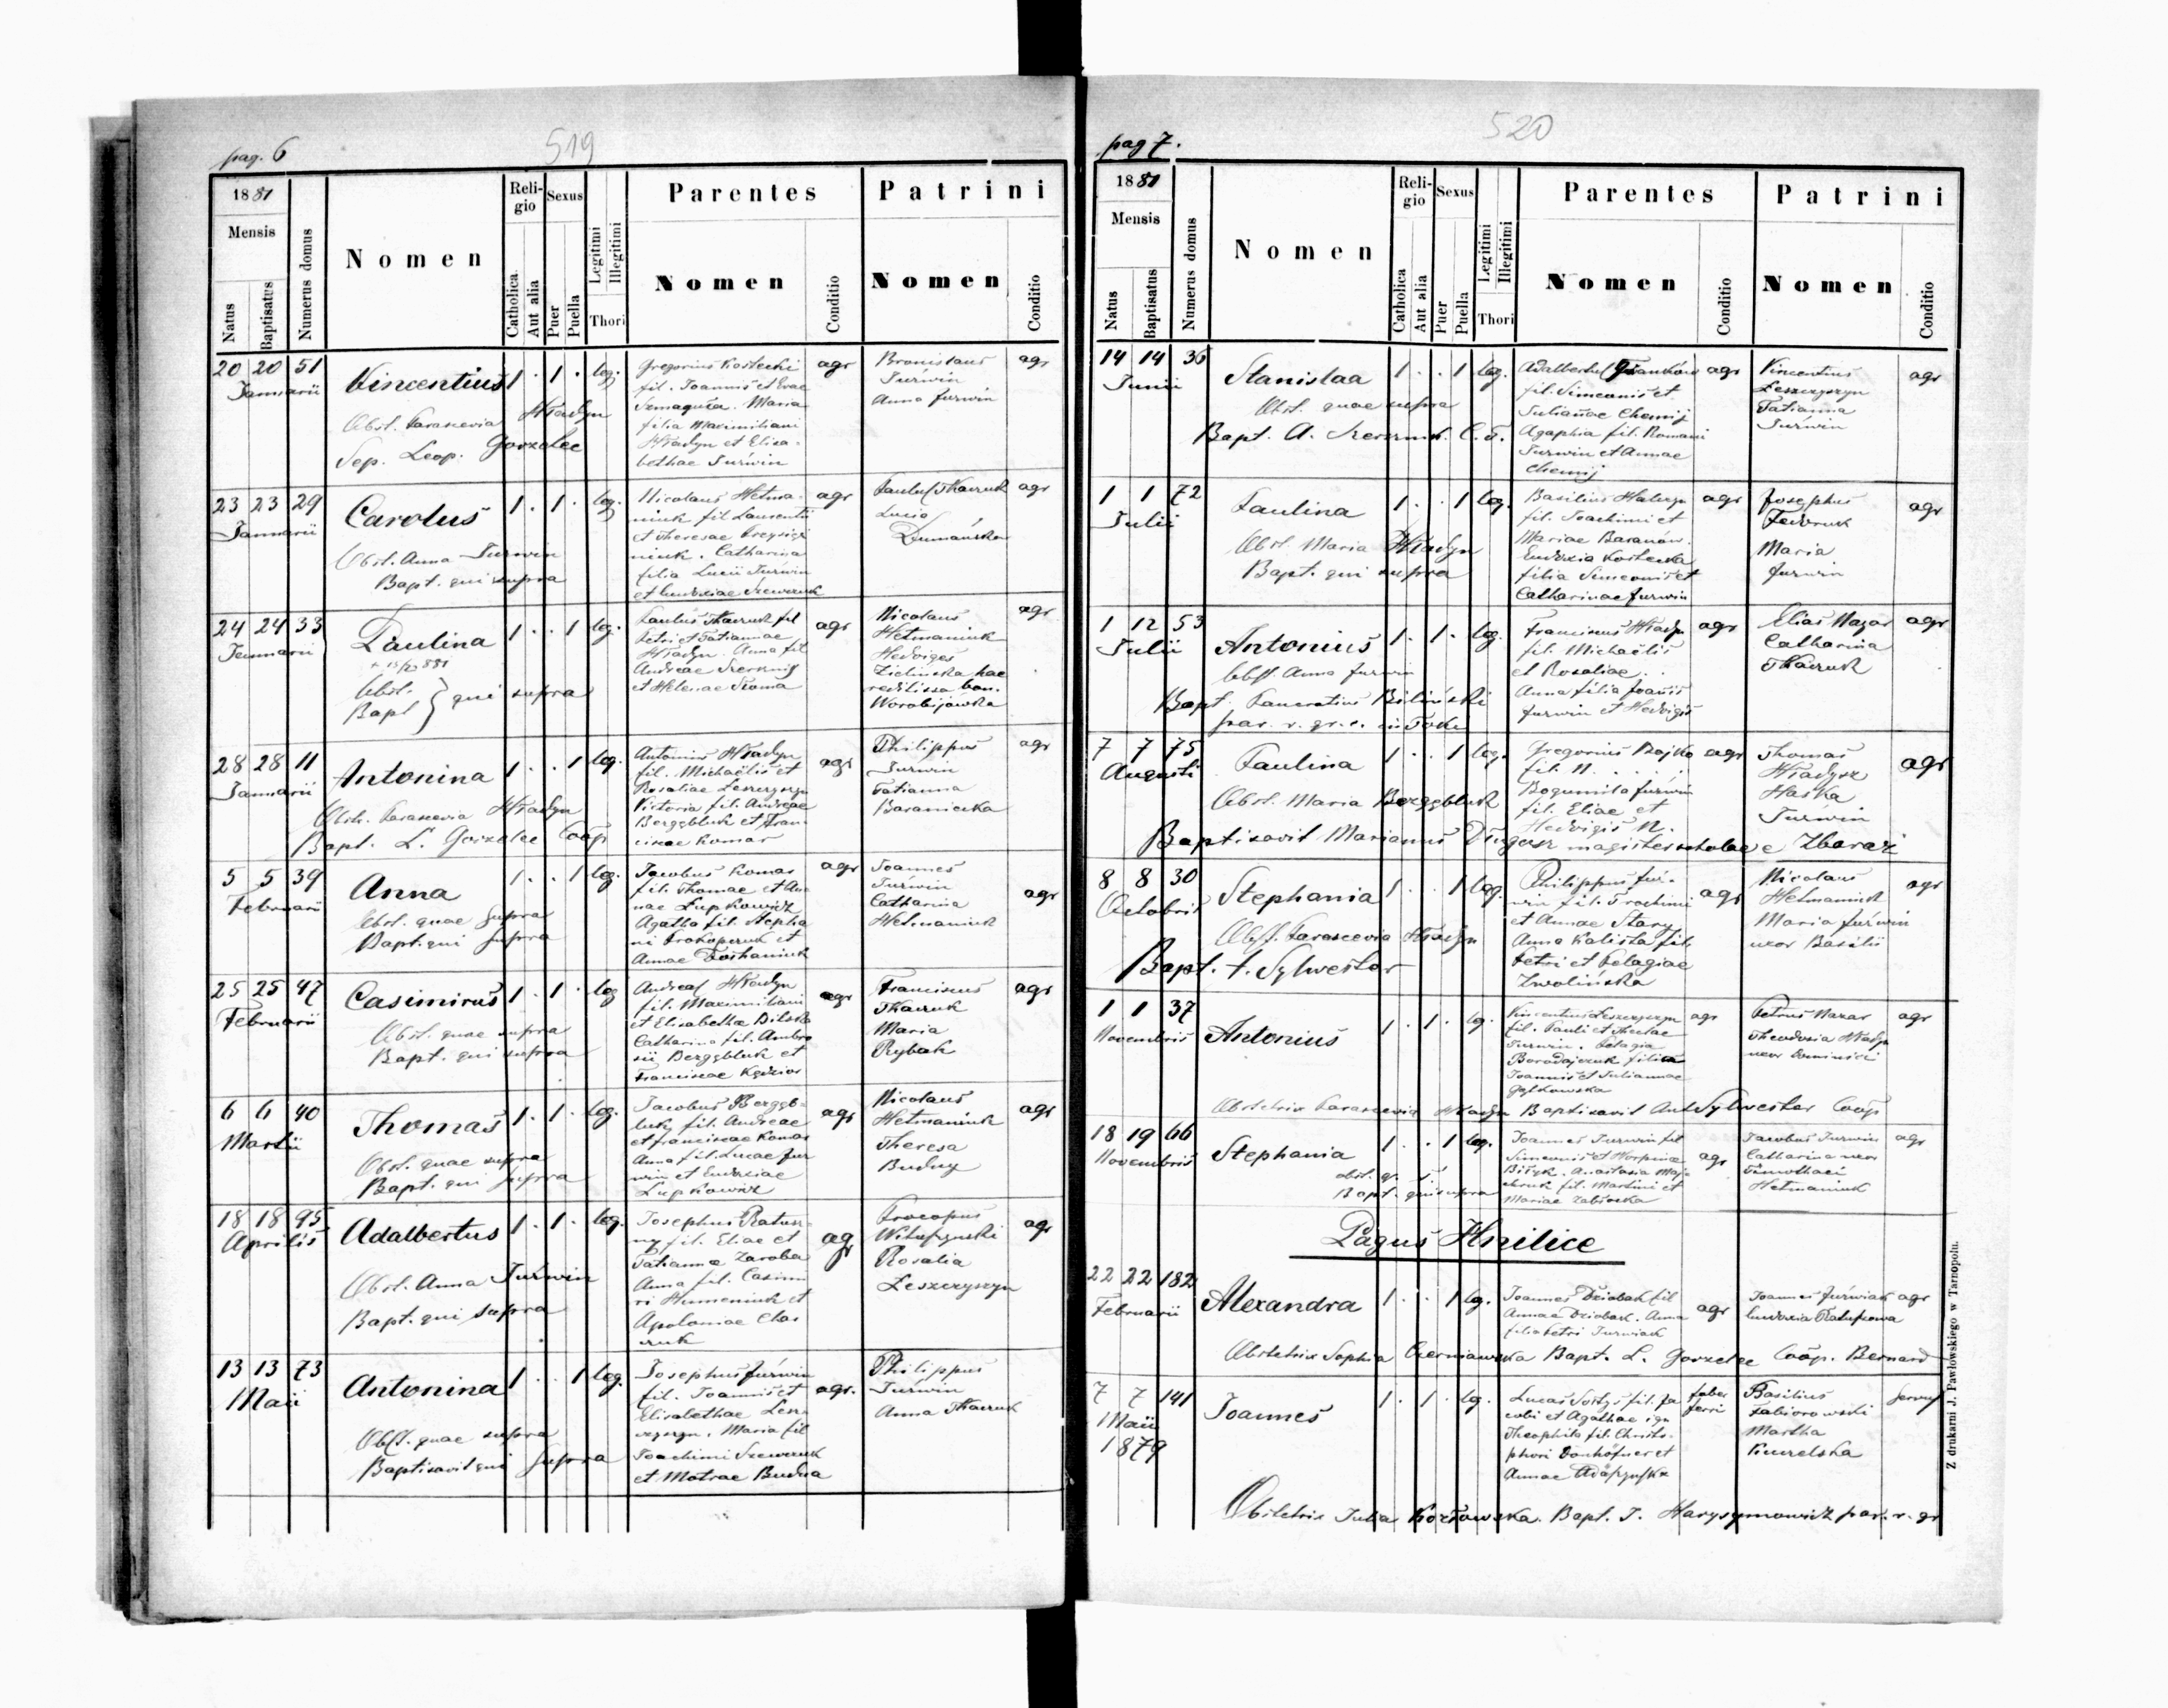 pag. 6
519
1881
Mensis
Natus
Baptisatus
Numerus domus
Nomen
Religio
Catholica
Aut alia
Sexus
Puer
Puella
Legitimi
Illegitimi
Thori
Parentes
Nomen
Conditio
Patrini
Nomen
Conditio
20 20 51
Januarii
Vincentius 1 . 1 . leg.
Obst. Parascevia Hładyn
Sep. Leop. Gorzelec
Gregorius Kostecki agr
fil. Joannis et Evae
Maria
filia Maximiliani
Hładyn et Elisa-
bethae Jurwin
Bronislaus agr
Jurwin
Anna Jurwin
23 23 29
Januarii
Carolus 1 . 1 . leg.
Obst. Anna Jurwin
Bapt. qui supra
Nicolaus Hetma- agr
niuk fil Laurentii
et Theresae
niuk. Catharina
filia Lucii Jurwin
et Eudoxiae Szewczuk
Paulus Tkaczuk agr
Lucia
Dumańska
24 24 33
Januarii
Paulina 1 . . 1 leg.
Obst.
Bapt } qui supra
Paulus Tkaczuk fil agr
Petri et Tatiannae
Hładyn. Anna fil
Andreae
et Helenae
Nicolaus agr
Hetmaniuk
Hedviges
Zielinska hae
reditissa bon.
Worobijówka
28 28 11
Januarii
Antonina 1 . . 1 leg.
Obst. Parascevia Hładyn
Bapt. L. Gorzelec Coop
Antonius Hładyn agr
fil. Michaëlis et
Rosaliae Leszczyszyn
Victoria fil. Andreae
Berggbluk et Fran-
ciscae Komar
Philippus agr
Jurwin
Tatianna
Baraniecka
5 5 39
Februarii
Anna 1 . . 1 leg.
Obst. quae supra
Bapt. qui supra
Jacobus Komar agr
fil. Thomae et An-
nae Łupkowicz
Agatha fil. Stepha
ni Prokopczuk et
Annae
Joannes
Jurwin
Catharina agr
Hetmaniuk
25 25 47
Februarii
Casimirus 1 . 1 . leg
Obst. quae supra
Bapt. qui supra
Andreas Hładyn
fil. Maximiliani agr
et Elisabethae Bilska
Catharina fil. Ambro
sii Berggbluk et
Franciscae Kędzior
Franciscus agr
Tkaczuk
Maria
Rybak
6 6 40
Martii
Thomas 1 . 1 . leg.
Obst. quae supra
Bapt. qui supra
Jacobus Berggb-
luk fil. Andreae agr
et Franciscae Komar
Anna fil. Lucae Jur
win et Eudoxiae
Łupkowicz
Nicolaus
Hetmaniuk agr
Theresa
Budny
18 18 95
Aprilis
Adalbertus 1 . 1 . leg.
Obst. Anna Jurwin
Bapt. qui supra
Josephus Ratusz-
ny fil. Eliae et agr
Tatianna Zaroba
Anna fil. Casimi
ri Humeniuk et
Apoloniae
Procopus
agr
Rosalia
Leszczyszyn
13 13 73
Maii
Antonina 1 . . 1 leg.
Obst. quae supra
Baptisavit qui supra
Josephus Jurwin
fil. Joannis et agr.
Elisabethae Lesz-
czyszyn. Maria fil
Joachimi Szewczuk
et Motrae Budna
Philippus
Jurwin
Anna Tkaczuk
pag 7.
520
1881
Mensis
Natus
Baptisatus
Numerus domus
Nomen
Religio
Catholica
Aut alia
Sexus
Puer
Puella
Legitimi
Illegitimi
Thori
Parentes
Nomen
Conditio
Patrini
Nomen
Conditio
14 14 36
Junii
Stanislaa 1 . . 1 leg.
Obst. quae supra
Bapt. A.
Adalbertus agr
fil. Simeonis et
Julianae Chemij
Agaphia fil. Romani
Jurwin et Annae
Chemij
Vincentius
Leszczyszyn agr
Tatianna
Jurwin
1 1 72
Julii
Paulina 1 . . 1 leg.
Obst. Maria Hładyn
Bapt. qui supra
Basilius agr
fil. Joachimi et
Mariae Baranow.
Eudoxia Kostecka
filia Simeonis et
Catharinae Jurwin
Josephus
Fedoruk agr
Maria
Jurwin
1 12 53
Julii
Antonius 1 . 1 . leg.
Obst. Anna Jurwin
Bapt. Pancratius Biliński
par. r. gr. c. in Toki
Franciscus Hładyn agr
fil. Michaëlis
et Rosaliae.
Anna filia Joanis
Jurwin et Hedvigis
Elias Nazar agr
Catharina
Tkaczuk
7 7 75
Augusti
Paulina 1 . . 1 leg.
Obst. Maria Berggbluk
Baptisavit Marianus Długosz magister scholae e Zbaraż
Gregorius Bajko agr
fil. N. . . . .
Bogumila Jurwin
fil. Eliae et
Hedvigis N.
Thomas
Hładysz agr
Haska
Jurwin
8 8 30
Octobris
Stephania 1 . . 1 leg.
Obst. Parascevia Hładyn
Bapt. A. Sylwester
Philippus Jur-
win fil. Joachimi agr
et Annae Stary
Anna Kalista fil.
Petri et Pelagiae
Zwolińska
Nicolaus
Hetmaniuk agr
Maria Jurwin
uxor Basilii
1 1 37
Novembris
Antonius 1 . 1 . leg.
Vincentius Leszczyszyn agr
fil. Pauli et Theclae
Jurwin. Pelagia
Borodajczuk filia
Joannis et Juliannae
Petrus Nazar agr
Theodosia Hładyn
uxor Dominici
Obstetrix Parascevia Hładyn Baptisavit Ant Sylwester Coop
18 19 66
Novembris
Stephania 1 . . 1 leg.
obst. q. s.
Bapt. qui supra
Joannes Jurwin fil
Simeonis et agr
Anastasia Maj-
chruk fil. Martini et
Mariae
Jacobus Jurwin agr
Catharina uxor
Timothaei
Hetmaniuk
Pagus Hnilice
22 22 182
Februarii
Alexandra 1 . . 1 leg.
Joannes Dziobak fil
Annae Dziobak. Anna agr
filia Petri Jurwiak
Joannes Jurwiak agr
Eudoxia
Obstetrix Sophia Czerniawska Bapt. L. Gorzelec Coop. Bernard
7 7 141
Maii
1879
Joannes 1 . 1 . leg.
Lucas Sołtys fil. Ja faber
cobi et Agathae ign ferri
Theophila fil. Christo-
phori et
Annae
Basilius servus
Martha
Obstetrix Julia Kozłowska. Bapt. J. Harysymowicz par. r. gr
Z drukarni J. Pawłowskiego w Tarnopolu.